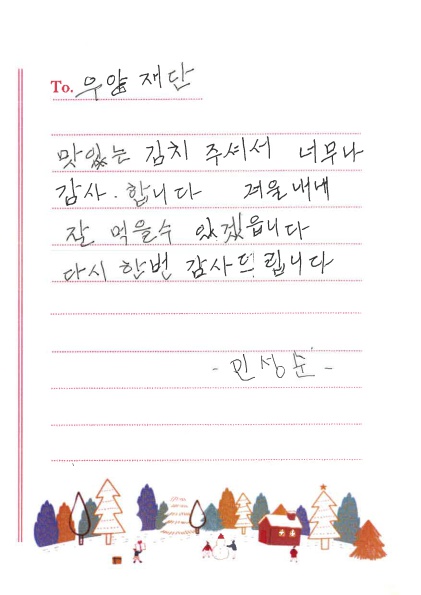 To. 우암 재단
맛있는 김치 주셔서 너무나
감사. 합니다 겨울내내
잘 먹을수 있겠읍니다
다시 한번 감사드립니다
- 민성순 -